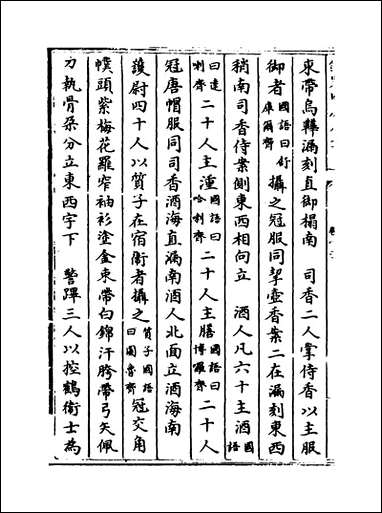 束帶烏鞾漏刻直御榻南　司香二人掌侍香以主服
御者國語曰舒庫爾齊攝之冠服同挈壺香案二在漏刻東西
稍南司香侍案側東西相向立　酒人凡六十主酒國語
曰達喇齊二十人主湩國語曰哈喇齊二十人主膳國語曰博囉齊二十人
冠唐帽服同司香酒海直漏南酒人北面立酒海南
護尉四十人以質子在宿衛者攝之質子國語曰圖魯齊冠交角
幞頭紫梅花羅窄袖衫塗金束帶白錦汗胯帶弓矢佩
刀執骨朶分立東西宇下　警蹕三人以控鶴衛士為